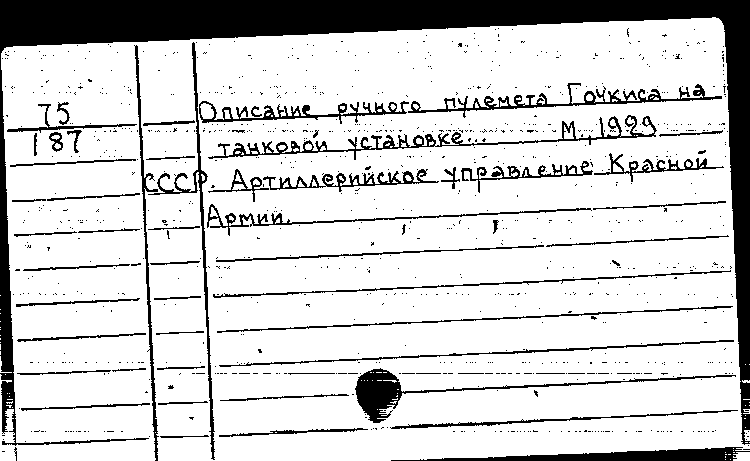 75
187
Описание ручного пулемета Гочкиса на
танковой установке... М., 1929
СССР. Артиллерийское управление Красной
Армии.